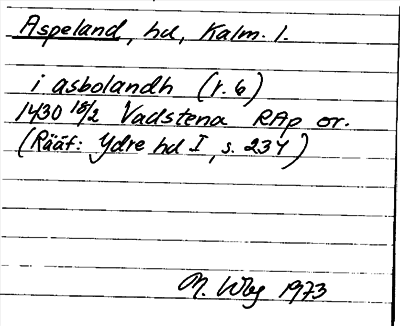 Aspeland, hd, Kalm. l.
i asbolandh (r. 6)
1430 18/2 Vadstena RAp or.
(Rääf: Ydre hd I, s. 234)
M. Wbg 1973